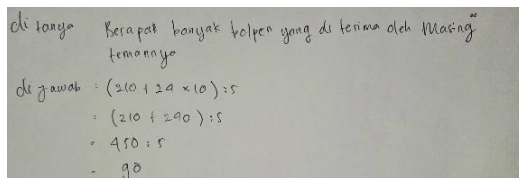 di tanya Berapak banyak bolpen yang di terima oleh Masing"
temannya
di jawab : (210 + 24 x 10) : 5
= (210 + 240) : 5
= 450 : 5
= 90